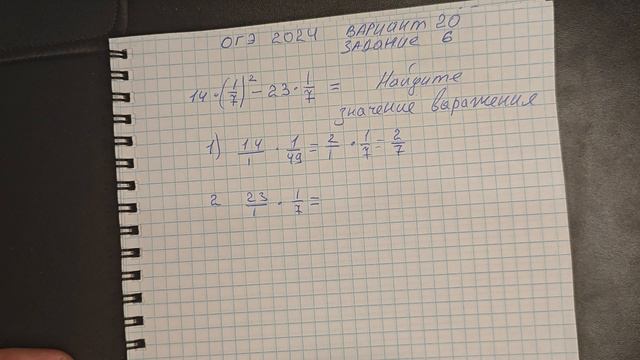 ОГЭ 2024 ВАРИАНТ 20
ЗАДАНИЕ 6
14·(1/7)² − 23·1/7 = Найдите
значение выражения
1) 14/1 · 1/49 = 2/1 · 1/7 = 2/7
2 23/1 · 1/7 =